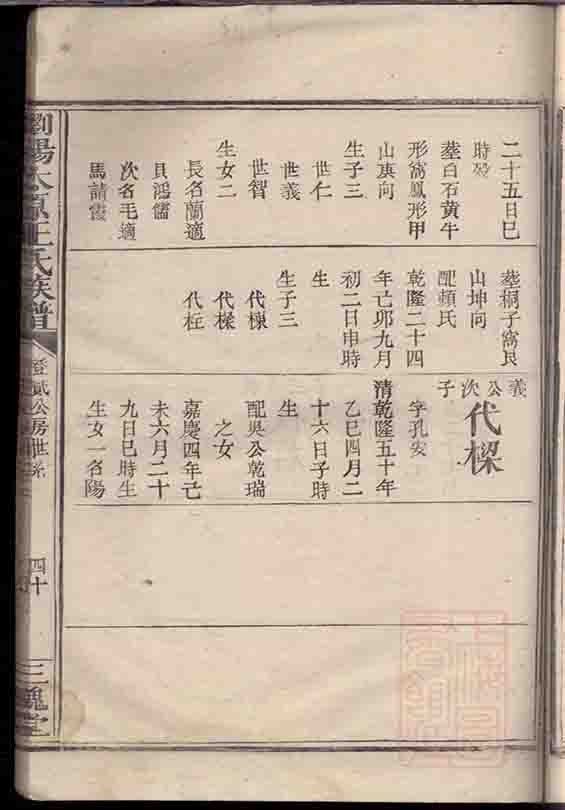 二十五日巳
時歿
塟白石黃牛
形窩鳳形甲
山庚向
生子三
世仁
世義
世智
生女二
長名蘭適
貝鴻儒
次名毛適
馬請霞
塟桐子窩艮
山坤向
配賴氏
乾隆二十四
年己卯九月
初二日申時
生
生子三
代棟
代樑
代柱
義公次子
代樑
字孔安
清乾隆五十年
乙巳四月二
十六日子時
生
配吳公乾瑞
之女
嘉慶四年己
未六月二十
九日巳時生
生女一名陽
瀏陽太原王氏族譜
登貳公房世系
四十
三槐堂